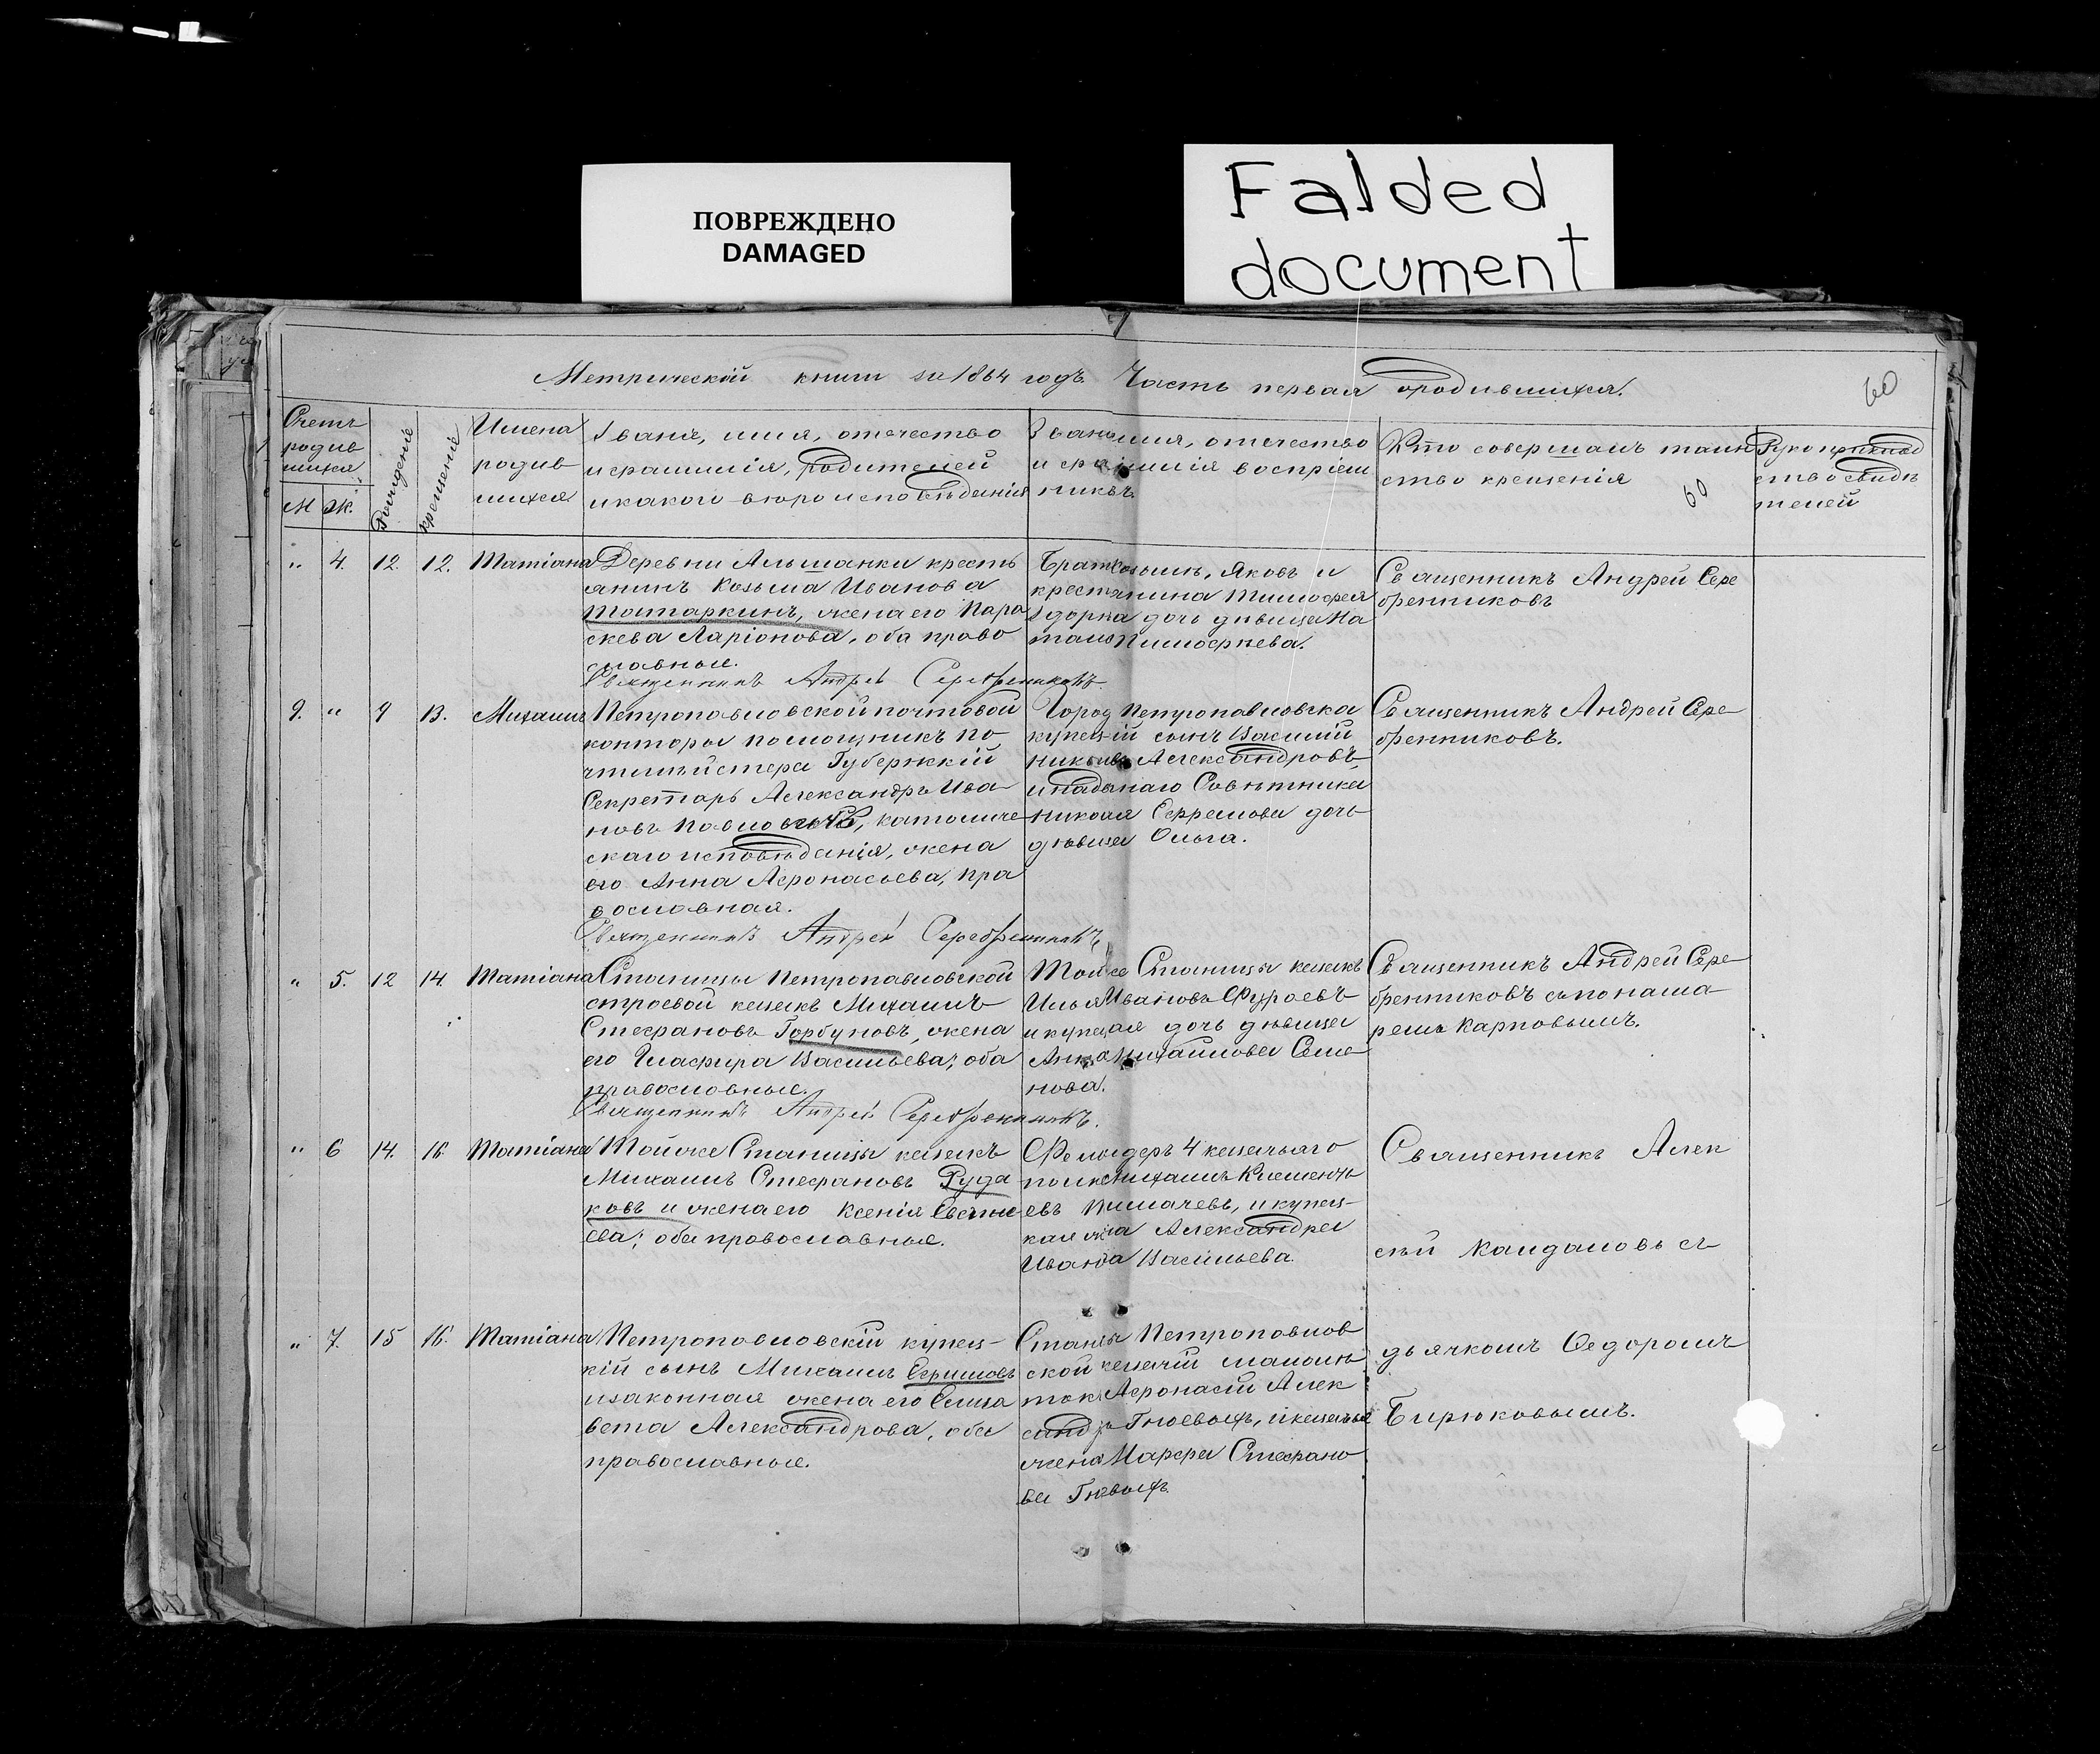 ПОВРЕЖДЕНО
DAMAGED
Falded
document
Метрической книги за 1864 годъ. Часть первая о родившихся.
60
Счетъ
родив
шихся
М Ж.
Рождение
крещение
Имена
родив
шихся
Званіе, имя, отчество
и фамилія, родителей
и какого вероисповѣданія
Званіе имя, отчество
и фамилія воспріем
никовъ
Кто совершалъ таин
ство крещенія
60
Рукоприклад
ство свидѣ
телей
" 4. 12. 12. Татіана
Деревни Альшанки кресть
янинъ Козьма Иванова
Татаркинъ, жена его Пара
скева Ларіонова, оба право
славные.
Священникъ Андрей Серебренниковъ.
Яковъ и
крестянина Тимофея
дочь дѣвица На
Тимофеева.
Священникъ Андрей Сере
бренниковъ
9. " 9 13. Михаилъ
Петропавловской почтовой
конторы помощникъ по
чтмейстера Губернскій
Секретарь Александръ Ива
новъ Павловичъ, католиче
скаго исповѣданія, жена
его Анна Афонасьева, пра
вославная.
Священникъ Андрей Серебренниковъ
Город Петропавловска
купецкій сынъ Василій
Александровъ,
и надворнаго Совѣтника
Николая Ефремова дочь
дѣвица Ольга.
Священникъ Андрей Сере-
бренниковъ.
" 5. 12 14. Татіана
Станицы Петропавловской
строевой казакъ Михаилъ
Стефановъ Горбуновъ, жена
его Глафира Васильева, оба
православные.
Священникъ Андрей Серебренниковъ.
Той же Станицы казакъ
Илья Ивановъ
и купецкая дочь дѣвица
Анна Михайлова Семе-
нова.
Священникъ Андрей Сере-
бренниковъ съ понама-
ремъ Карповымъ.
" 6 14. 16. Татіана
Той же Станицы казакъ
Михаилъ Стефановъ Руда
ковъ и жена его Ксенія
оба православные.
4 казачьяго
полка Михаилъ Клементь
евъ и купец-
кая жена Александра
Иванова Васильева.
Священникъ Алек
сѣй Кайдаловъ съ
" 7. 15 16. Татіана
Петропавловскій купец-
кій сынъ Михаилъ Ефимовъ
и законная жена его Елиза
вета Александрова, оба
православные.
Станицы Петропавлов
ской казачій малолѣ
токъ Афонасій Алек
сандръ и казачья
жена Марфа Стефано
ва
дьячкомъ Федоромъ
Бирюковымъ.